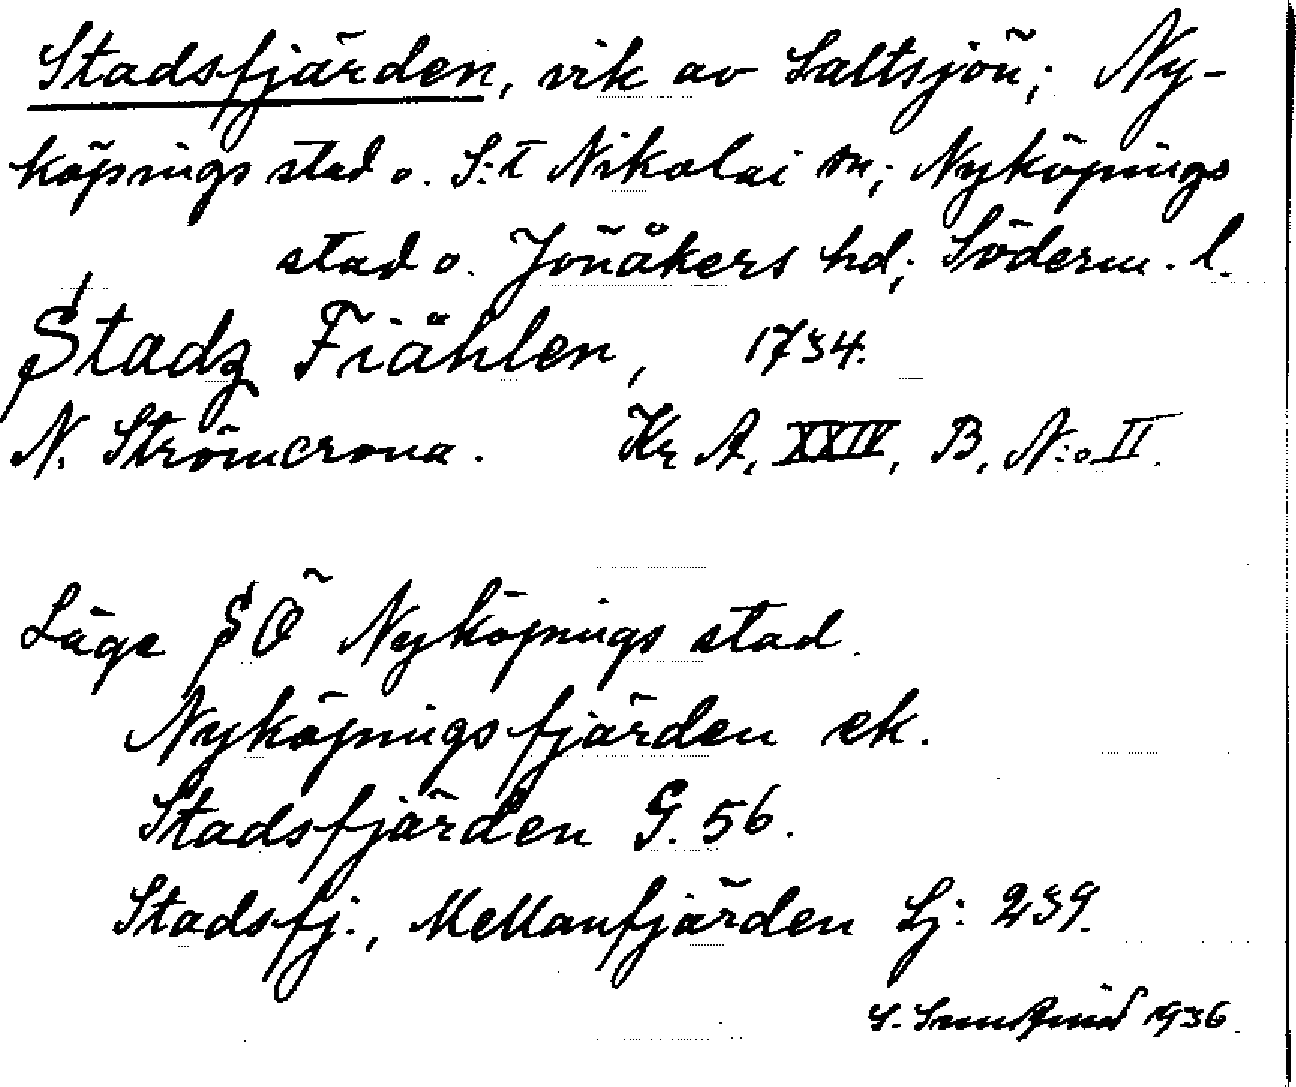 Stadsfjärden, vik av Saltsjön; Ny-
köpings stad o. S:t Nikolai sn; Nyköpings
stad o. Jönåkers hd; Söderm. l.
Stadz Fiählen, 1734.
N. Strömcrona. Kr A, XXIV, B, N:o II.
Läge SÖ Nyköpings stad.
Nyköpingsfjärden ek.
Stadsfjärden G. 56.
Stadsfj., Mellanfjärden Lj: 239.
S. 1936.